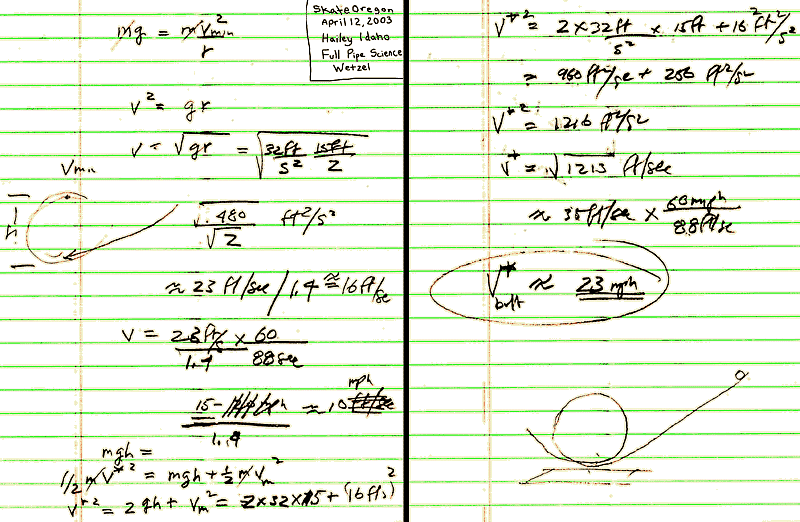 mg = mv²min / r
SkateOregon
April 12, 2003
Hailey Idaho
Full Pipe Science
Wetzel
v² = gr
v = √gr = √(32ft/s² 15ft/2)
Vmin
h
√480 / √2 ft²/s²
≈ 23 ft/sec / 1.4 ≈ 16 ft/sec
V = 23 ft/s / 1.4 × 60 / 88 sec
15 / 1.4 ≈ 10 mph
mgh =
1/2 mV*² = mgh + ½ mVm²
V*² = 2gh + Vm² = 2×32×15 + (16 ft/s)²
V*² = 2×32ft/s² × 15ft + 16² ft²/s²
= 960 ft²/sec + 256 ft²/s²
V*² = 1216 ft²/s²
V* = √1213 ft/sec
≈ 35 ft/sec × 60mph / 88 ft/sec
V* ≈ 23 mph